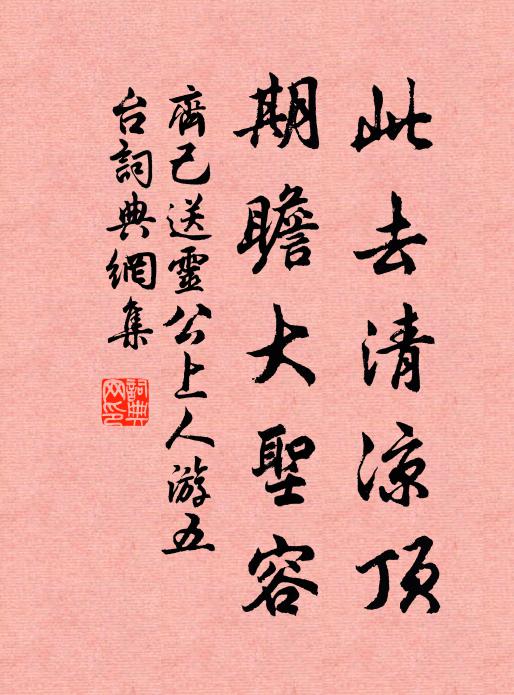 此去清凉顶
期瞻大聖容
齊己送靈公上人游五
台詞典網集
詞典网印